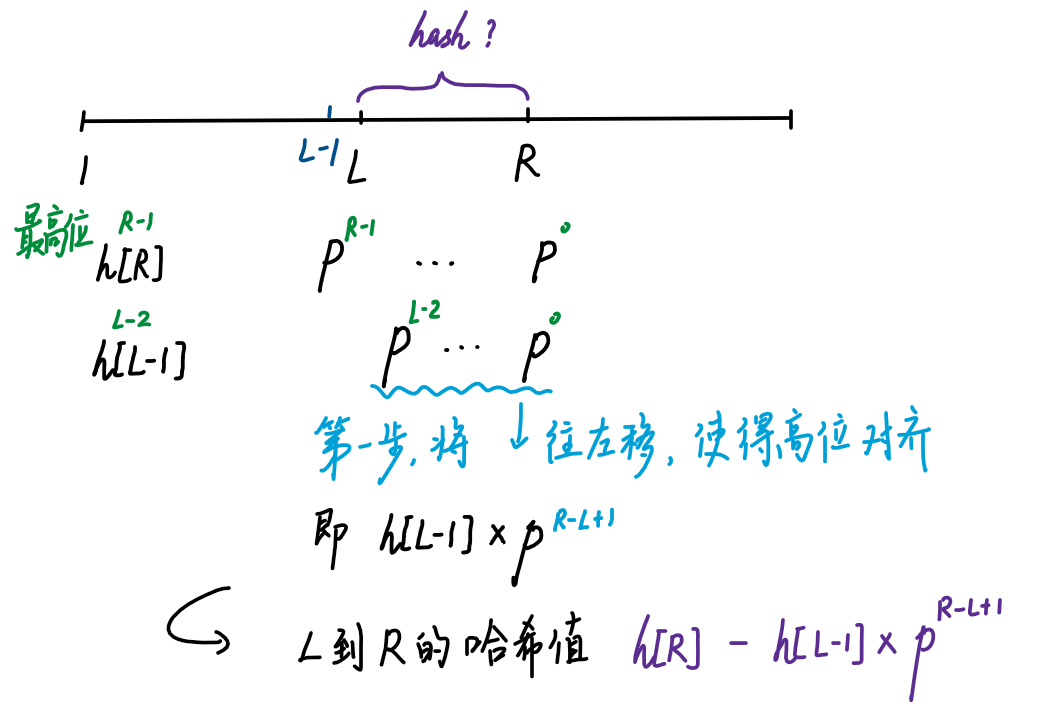 hash ?
1 L-1 L R
最高位 h[R] R-1 p^{R-1} ... p^0
h[L-1] L-2 p^{L-2} ... p^0
第一步, 将 ↓ 往左移, 使得高位对齐
即 h[L-1] × p^{R-L+1}
L到R的哈希值 h[R] - h[L-1] × p^{R-L+1}